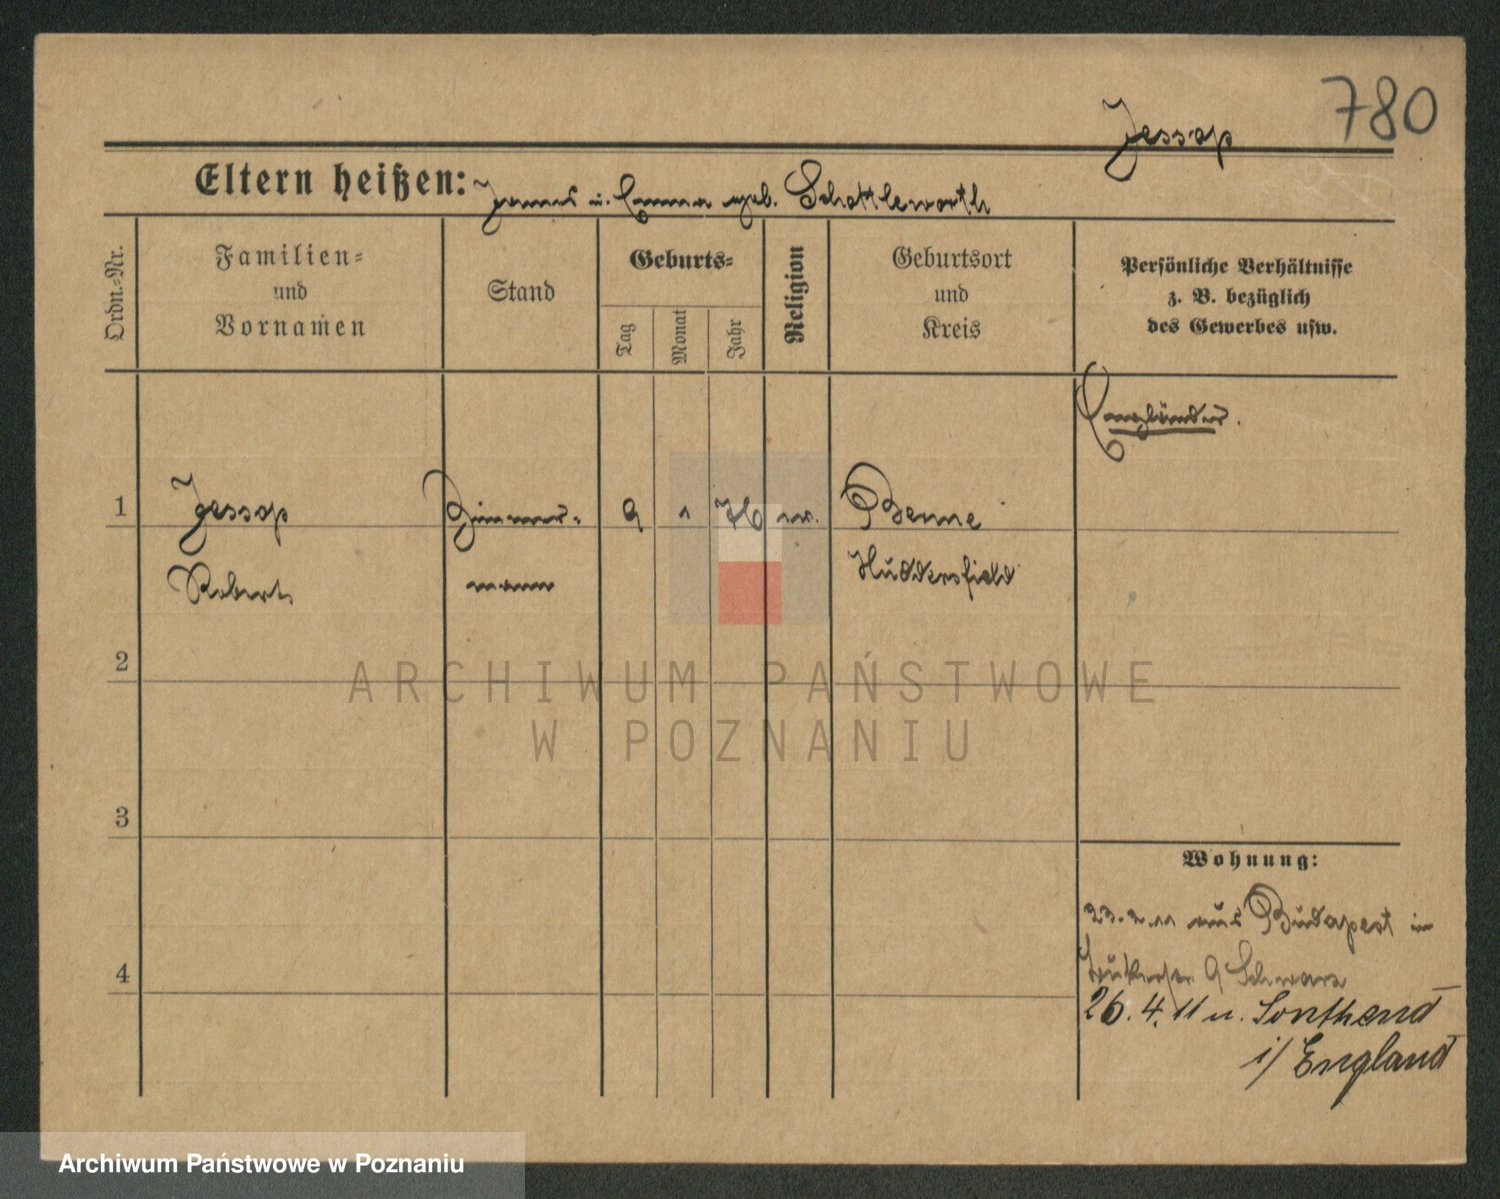 780
Jessop
Eltern heißen: James u. Emma geb. Schottleworth
Ordn.=Nr.
Familien=
und
Vornamen
Stand
Geburts=
Tag
Monat
Jahr
Religion
Geburtsort
und
Kreis
Persönliche Verhältnisse
z. B. bezüglich
des Gewerbes usw.
Engländer.
1 Jessop Zimmer= 9 1 76 Benne
Robert mann Huddersfield
2
3
4
Wohnung:
23.2.11 aus Budapest in
9 Schwarz
26.4.11 n. Southend
i/ England
ARCHIWUM PAŃSTWOWE
W POZNANIU
Archiwum Państwowe w Poznaniu